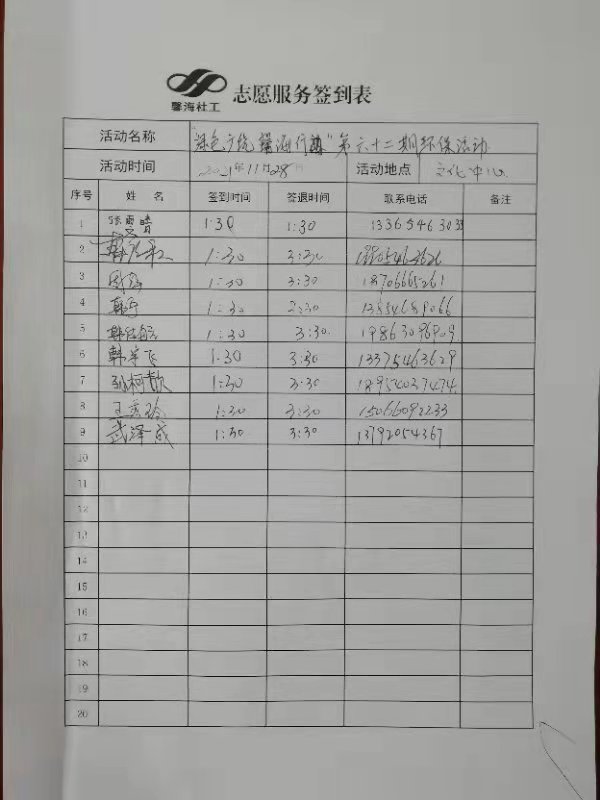 馨海社工 志愿服务签到表
活动名称 "绿色广饶 馨海行动"第六十二期环保活动
活动时间 2021年11月28日 活动地点 文化中心
序号 姓 名 签到时间 签退时间 联系电话 备注
1 1:30 1:30
2 1:30 3:30
3 1:30 3:30 18706665261
4 韩 1:30 2:30 13854689066
5 韩 1:30 3:30. 19863096909
6 韩宇飞 1:30 3:30 13375463629
7 孙柯歆 1:30 3:30 18954037474
8 王秀玲 1:30 3:30 15066092233
9 武泽成 1:30 3:30 13792054367
10
11
12
13
14
15
16
17
18
19
20